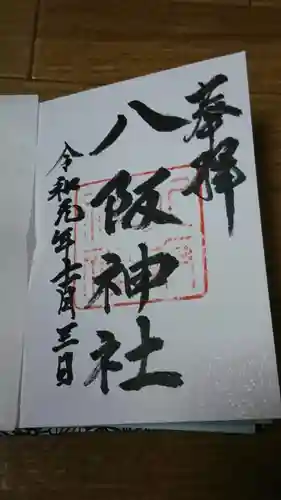 奉拝
八阪神社
令和元年十一月三日